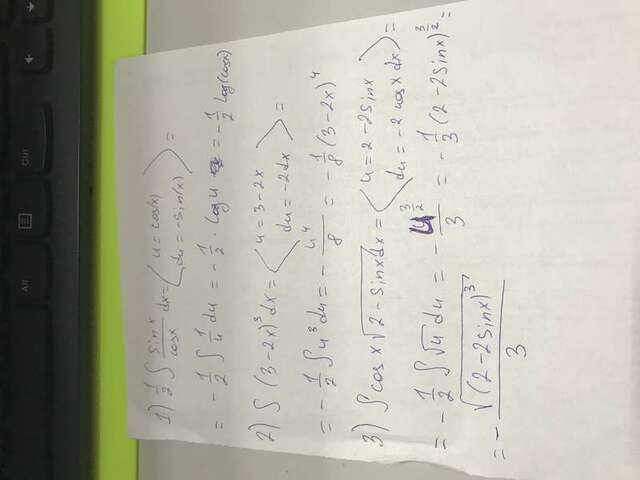 Alt
Ctrl
1) 1/2 ∫ sinx/cosx dx = ⟨ u = cos(x) du = -sin(x) ⟩ =
= - 1/2 ∫ 1/u du = - 1/2 · log u = - 1/2 log(cosx)
2) ∫ (3-2x)³ dx = ⟨ u = 3-2x du = -2dx ⟩ =
= - 1/2 ∫ u³ du = - u⁴/8 = - 1/8 (3-2x)⁴
3) ∫ cos x √(2 - sinx) dx = ⟨ u = 2-2sinx du = -2 cos x dx ⟩ =
= - 1/2 ∫ √u du = - u^(3/2)/3 = - 1/3 (2-2sinx)^(3/2) =
= - √((2-2sinx)³)/3